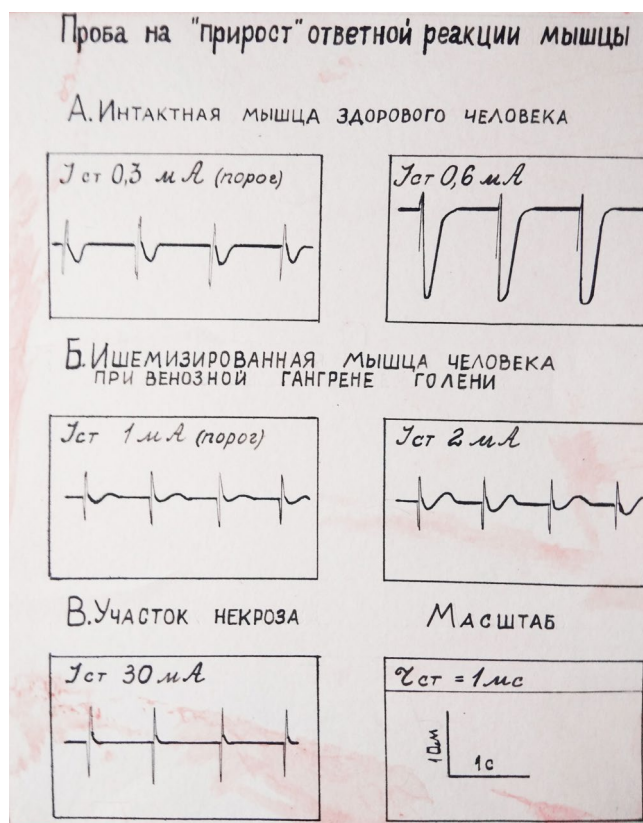 Проба на "прирост" ответной реакции мышцы
А. Интактная мышца здорового человека
Iст 0,3 мА (порог)
Iст 0,6 мА
Б. Ишемизированная мышца человека
при венозной гангрене голени
Iст 1 мА (порог)
Iст 2 мА
В. Участок некроза
Масштаб
Iст 30 мА
τст = 1 мс
1с